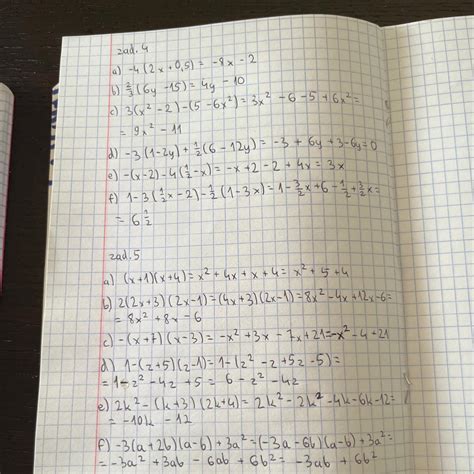 zad. 4
a) -4(2x+0,5) = -8x - 2
b) 2/3(6y - 15) = 4y - 10
c) 3(x² - 2) - (5 - 6x²) = 3x² - 6 - 5 + 6x² =
= 9x² - 11
d) -3(1-2y) + 1/2(6 - 12y) = -3 + 6y + 3 - 6y = 0
e) -(x-2) - 4(1/2 - x) = -x + 2 - 2 + 4x = 3x
f) 1 - 3(1/2x - 2) - 1/2(1 - 3x) = 1 - 3/2x + 6 - 1/2 + 3/2x =
= 6 1/2
zad. 5
a) (x+1)(x+4) = x² + 4x + x + 4 = x² + 5 + 4
b) 2(2x+3)(2x-1) = (4x+3)(2x-1) = 8x² - 4x + 12x - 6 =
= 8x² + 8x - 6
c) -(x+7)(x-3) = -x² + 3x - 7x + 21 = -x² - 4 + 21
d) 1 - (z+5)(z-1) = 1 - (z² - z + 5z - 5) =
= 1 - z² - 4z + 5 = 6 - z² - 4z
e) 2k² - (k+3)(2k+4) = 2k² - 2k² - 4k - 6k - 12 =
= -10k - 12
f) -3(a+2b)(a-b) + 3a² = (-3a - 6b)(a-b) + 3a² =
= -3a² + 3ab - 6ab + 6b² = -3ab + 6b²